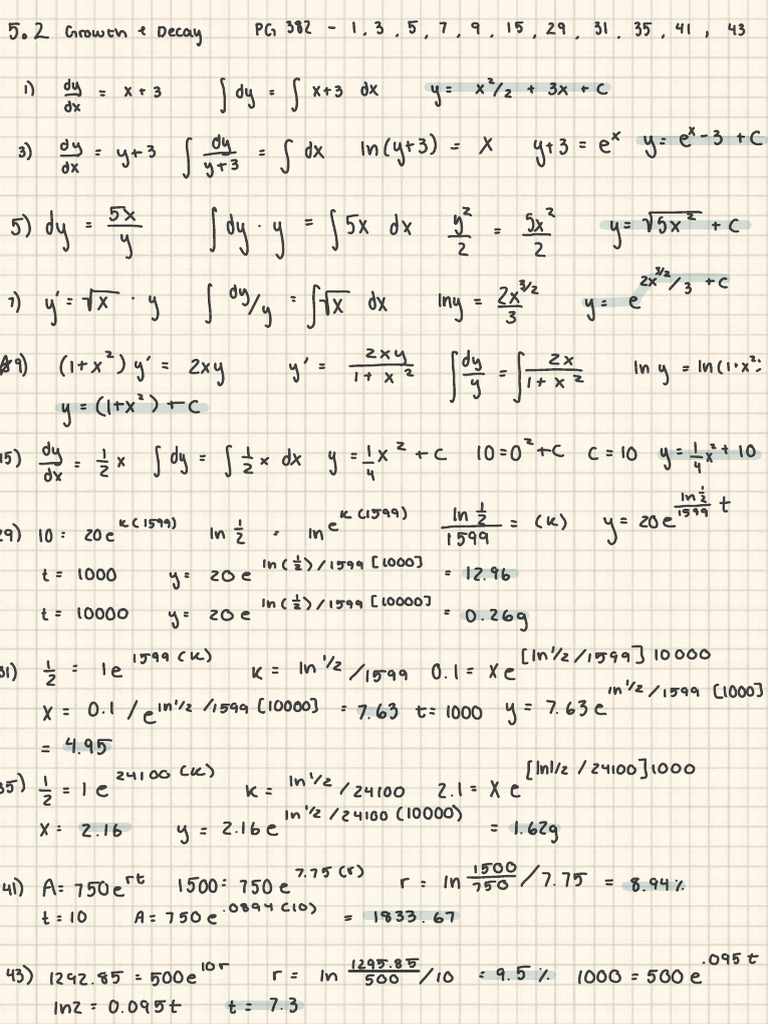 5.2 Growth & Decay PG 382 - 1, 3, 5, 7, 9, 15, 29, 31, 35, 41, 43
1) dy/dx = x + 3 ∫ dy = ∫ x+3 dx y = x²/2 + 3x + C
3) dy/dx = y+3 ∫ dy/y+3 = ∫ dx ln(y+3) = x y+3 = eˣ y = eˣ-3 + C
5) dy = 5x/y ∫ dy · y = ∫ 5x dx y²/2 = 5x²/2 y = √5x² + C
7) y' = √x · y ∫ dy/y = ∫√x dx lny = 2x^3/2/3 y = e^2x^3/2/3 + C
9) (1+x²) y' = 2xy y' = 2xy/1+x² ∫ dy/y = ∫ 2x/1+x² ln y = ln(1+x²)
y = (1+x²) + C
15) dy/dx = 1/2 x ∫ dy = ∫ 1/2 x dx y = 1/4 x² + C 10=0²+C C = 10 y = 1/4 x² + 10
29) 10 = 20e^k(1599) ln 1/2 = ln e^k(1599) ln 1/2/1599 = (k) y = 20e^ln 1/2/1599 t
t = 1000 y = 20e^ln(1/2)/1599 [1000] = 12.96
t = 10000 y = 20e^ln(1/2)/1599 [10000] = 0.26g
31) 1/2 = 1e^1599(k) k = ln 1/2 /1599 0.1 = Xe^[ln 1/2 /1599] 10000
X = 0.1 / e^ln 1/2 /1599 [10000] = 7.63 t = 1000 y = 7.63e^ln 1/2 /1599 [1000]
= 4.95
35) 1/2 = 1e^24100(k) k = ln 1/2 /24100 2.1 = Xe^[ln1/2 /24100]1000
X = 2.16 y = 2.16e^ln 1/2 /24100 (10000) = 1.62g
41) A = 750e^rt 1500 = 750e^7.75(r) r = ln 1500/750 /7.75 = 8.94%
t = 10 A = 750e^.0894(10) = 1833.67
43) 1292.85 = 500e^10r r = ln 1295.85/500 /10 = 9.5% 1000 = 500e^.095t
ln2 = 0.095t t = 7.3